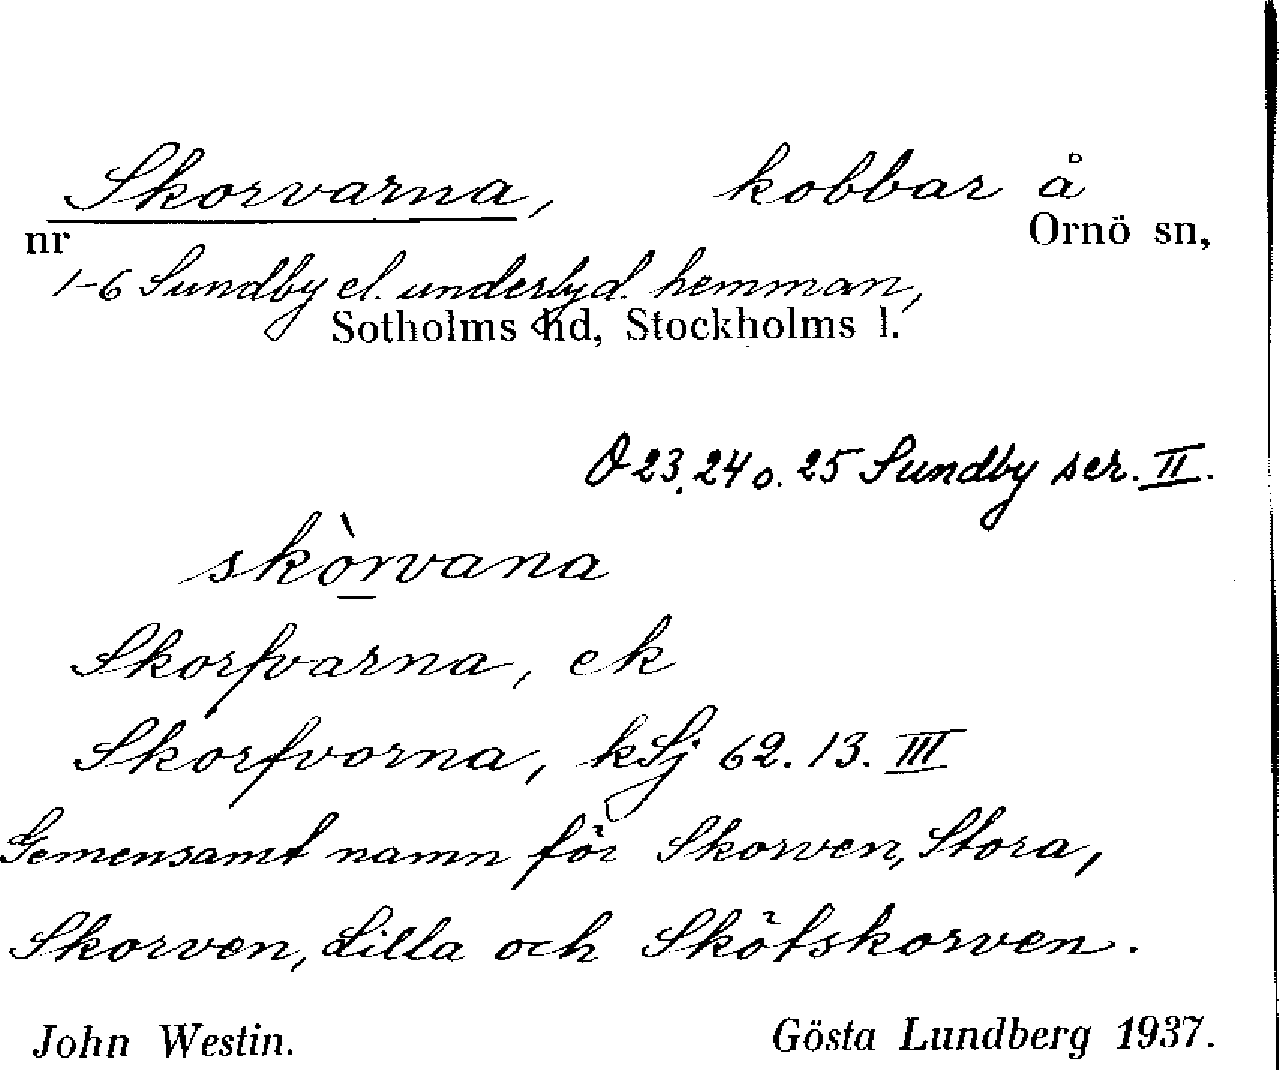 Skorvarna, kobbar å
nr Ornö sn,
1-6 Sundby el. underlyd. hemman,
Sotholms hd, Stockholms l.
23, 24 o. 25 Sundby ser. II.
skòrvana
Skorfvarna, ek
Skorfvorna, kSj 62. 13. III
Gemensamt namn för Skorven, Stora,
Skorven, Lilla och Skötskorven.
John Westin. Gösta Lundberg 1937.